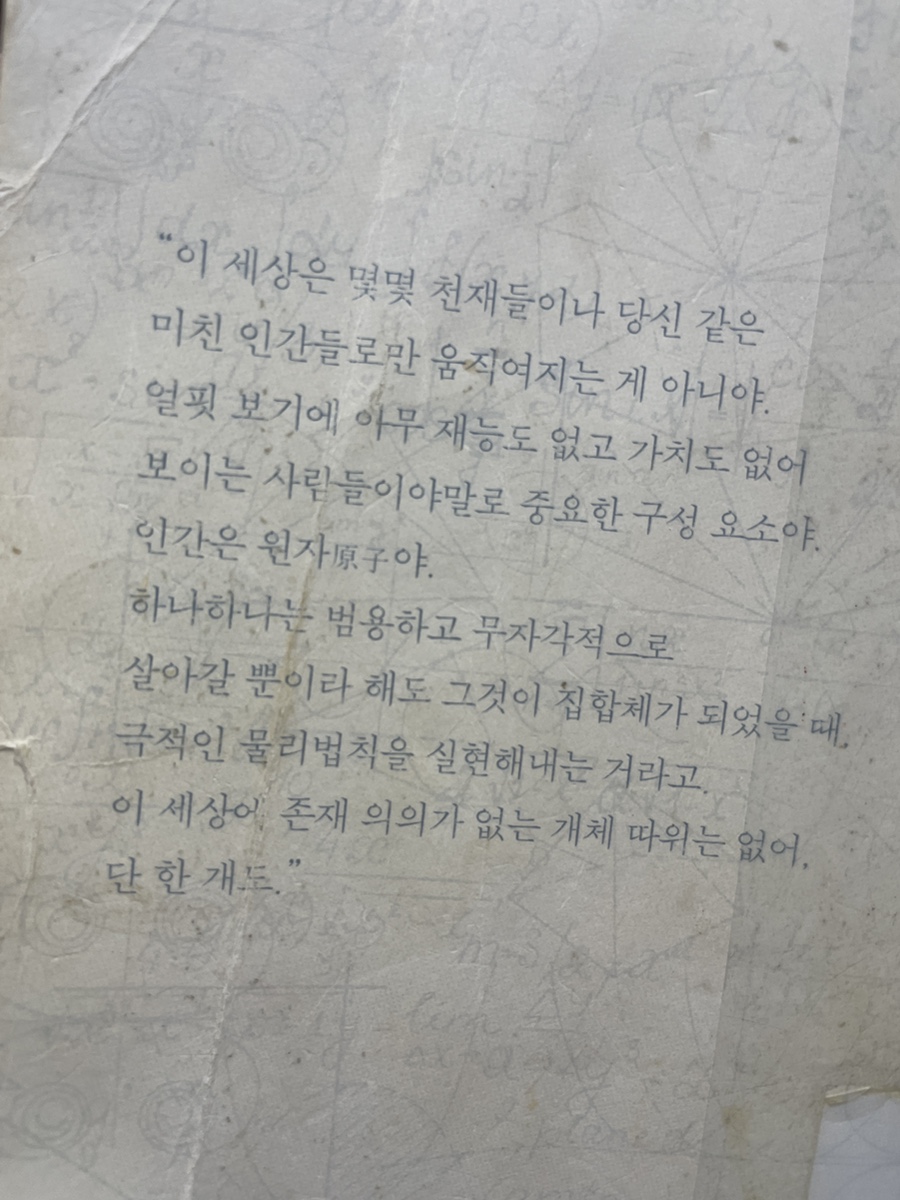 “이 세상은 몇몇 천재들이나 당신 같은
미친 인간들로만 움직여지는 게 아니야.
얼핏 보기에 아무 재능도 없고 가치도 없어
보이는 사람들이야말로 중요한 구성 요소야.
인간은 원자原子야.
하나하나는 범용하고 무자각적으로
살아갈 뿐이라 해도 그것이 집합체가 되었을 때,
극적인 물리법칙을 실현해내는 거라고.
이 세상에 존재 의의가 없는 개체 따위는 없어,
단 한 개도.”